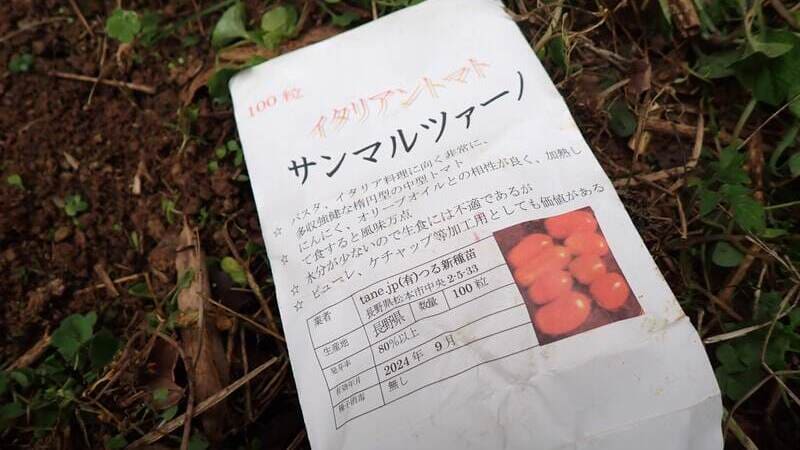 100 粒
イタリアントマト
サンマルツァーノ
パスタ、イタリア料理に向く非常に、
☆ 多収強健な楕円型の中型トマト
☆ にんにく、オリーブオイルとの相性が良く、加熱し
て食すると風味万点
☆ 水分が少ないので生食には不適であるが
☆ ピューレ、ケチャップ等加工用としても価値がある
業者 tane.jp(有)つる新種苗
長野県松本市中央2-5-33
生産地 長野県 数量 100 粒
発芽率 80%以上
有効年月 2024 年 9 月
種子消毒 無し